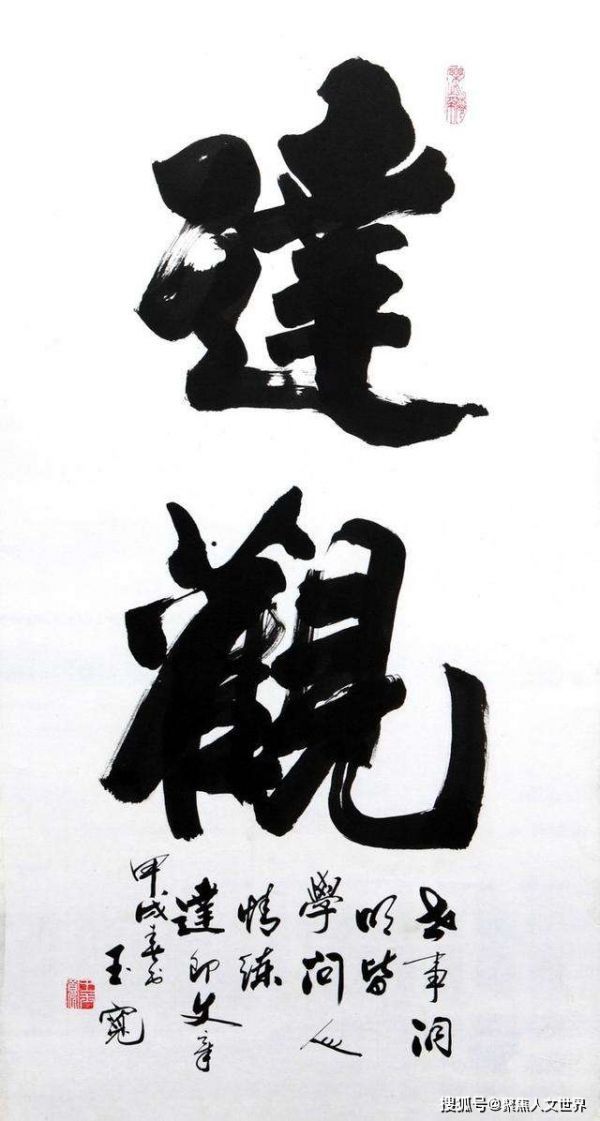 達觀
世事洞
明皆
學問人
情練
達即文章
甲戌春
玉寬
搜狐号@聚焦人文世界